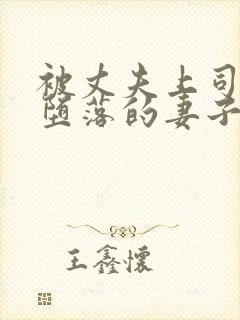 被丈夫上司
堕落的妻子
王鑫懷